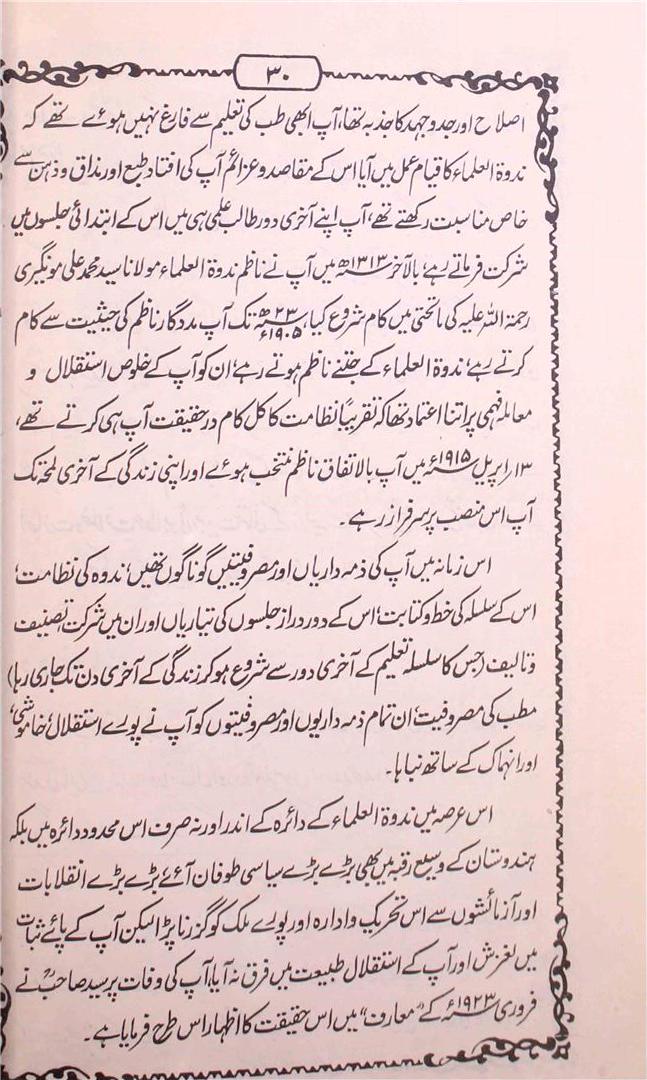 ۳۰
اصلاح اور جدوجہد کا جذبہ تھا، آپ ابھی طب کی تعلیم سے فارغ نہیں ہوئے تھے کہ
ندوۃ العلماء کا قیام عمل میں آیا اس کے مقاصد و عزائم آپ کی افتاد طبع اور مذاق و ذہن سے
خاص مناسبت رکھتے تھے، آپ اپنے آخری دور طالب علمی ہی میں اس کے ابتدائی جلسوں میں
شرکت فرماتے رہے، بالآخر ۱۳۱۳ھ میں آپ نے ناظم ندوۃ العلماء مولانا سید محمد علی مونگیری
رحمۃ اللہ علیہ کی ماتحتی میں کام شروع کیا، ۲۳ھ ۱۹۰۵ء تک آپ مددگار ناظم کی حیثیت سے کام
کرتے رہے، ندوۃ العلماء کے جتنے ناظم ہوتے رہے، ان کو آپ کے خلوص استقلال و
معاملہ فہمی پر اتنا اعتماد تھا کہ تقریباً نظامت کا کل کام درحقیقت آپ ہی کرتے تھے،
۱۳/اپریل ۱۹۱۵ء میں آپ بالاتفاق ناظم منتخب ہوئے اور اپنی زندگی کے آخری لمحہ تک
آپ اس منصب پر سرفراز رہے۔
اس زمانہ میں آپ کی ذمہ داریاں اور مصروفیتیں گوناگوں تھیں، ندوہ کی نظامت،
اس کے سلسلہ کی خط و کتابت، اس کے دور دراز جلسوں کی تیاریاں اور ان میں شرکت، تصنیف
و تالیف (جس کا سلسلہ تعلیم کے آخری دور سے شروع ہو کر زندگی کے آخری دن تک جاری رہا)
مطب کی مصروفیت، ان تمام ذمہ داریوں اور مصروفیتوں کو آپ نے پورے استقلال، خاموشی،
اور انہماک کے ساتھ نباہا۔
اس عرصہ میں ندوۃ العلماء کے دائرہ کے اندر اور نہ صرف اس محدود دائرہ میں بلکہ
ہندوستان کے وسیع رقبہ میں بھی بڑے بڑے سیاسی طوفان آئے، بڑے بڑے انقلابات
اور آزمائشوں سے اس تحریک و ادارہ اور پورے ملک کو گزرنا پڑا، لیکن آپ کے پائے ثبات
میں لغزش اور آپ کے استقلال طبیعت میں فرق نہ آیا، آپ کی وفات پر سید صاحبؒ نے
فروری ۱۹۲۳ء کے "معارف" میں اس حقیقت کا اظہار اس طرح فرمایا ہے۔